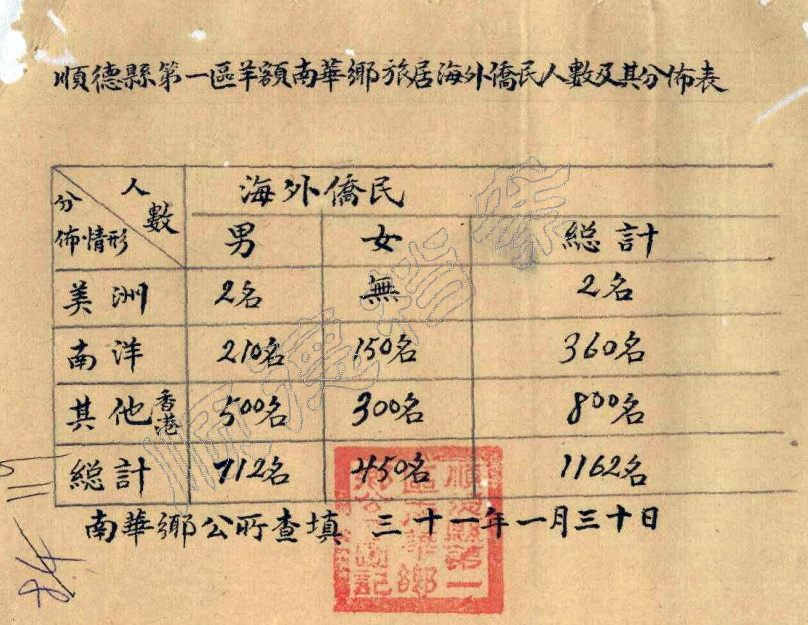 順德縣第一區羊額南華鄉旅居海外僑民人數及其分佈表
人數 海外僑民
分佈情形 男 女 総計
美洲 2名 無 2名
南洋 210名 150名 360名
其他香港 500名 300名 800名
総計 712名 450名 1162名
南華鄉公所查填 三十一年一月三十日
順德檔案